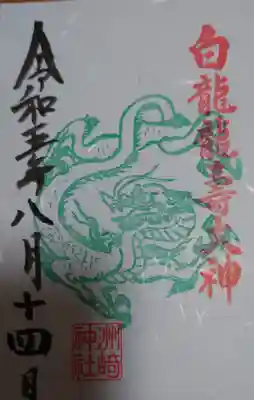 白龍龍寿大神
令和五年八月十四日
洲崎
神社